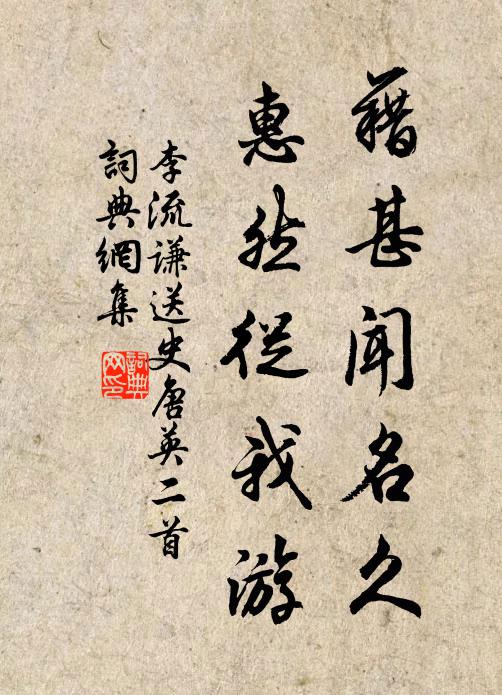 藉甚聞名久
惠然從我游
李流謙送史唐英二首
詞典網集
詞典网印